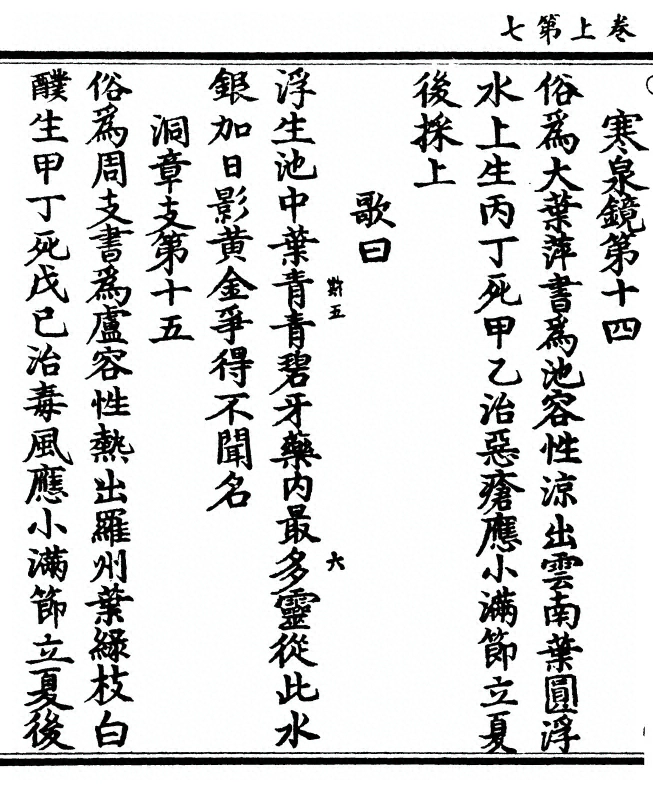 卷上第七
寒泉鏡第十四
俗爲大葉萍書爲池容性涼出雲南葉圓浮
水上生丙丁死甲乙治惡瘡應小滿節立夏
後採上
歌曰
斯五 六
浮生池中葉青青碧牙藥内最多靈從此水
銀加日影黄金爭得不聞名
洞章支第十五
俗爲周支書爲盧容性熱出羅州葉緑枝白
醭生甲丁死戊己治毒風應小滿節立夏後